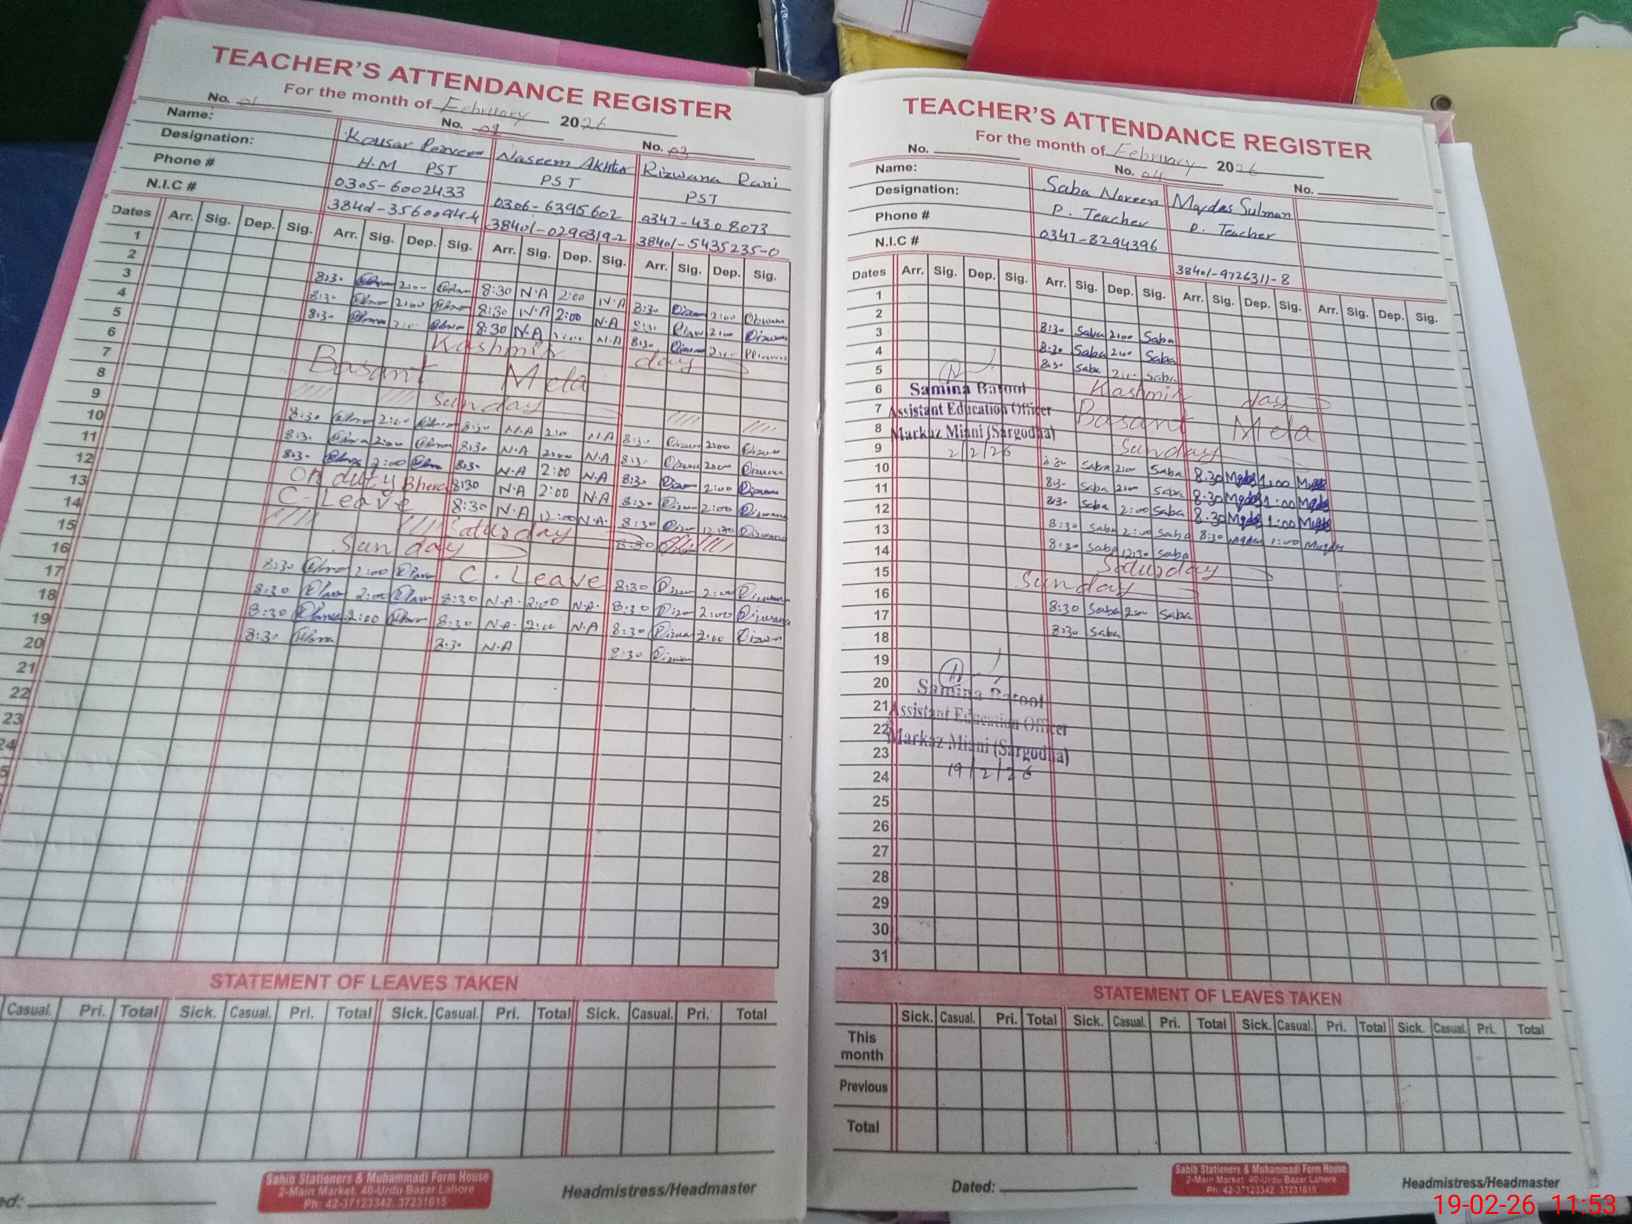 TEACHER'S ATTENDANCE REGISTER
For the month of February 2026
No. 01 No. 02 No. 03
Name: Kousar Perveen Naseem Akhtar Rizwana Rani
Designation: H.M PST PST PST
Phone # 0305-6002433 0306-6395602 0347-4308073
N.I.C # 38401-0290319-2 38401-5435235-0
Dates Arr. Sig. Dep. Sig. Arr. Sig. Dep. Sig. Arr. Sig. Dep. Sig. Arr. Sig. Dep. Sig.
1
2
3
8:30 2:00 8:30 N.A 2:00 N.A 8:30 2:00
4
8:30 2:00 8:30 N.A 2:00 N.A 8:30 2:00
5
8:30 2:00 8:30 N.A 2:00 N.A 8:30 2:00
6
Kashmir day
7
Basant Mela
8
Sunday
9
8:30 2:00 8:30 N.A 2:00 N.A 8:30 2:00
10
8:30 2:00 8:30 N.A 2:00 N.A 8:30 2:00
11
8:30 2:00 8:30 N.A 2:00 N.A 8:30 2:00
12
On duty Bhera 8:30 N.A 2:00 N.A 8:30 2:00
13
C. Leave 8:30 N.A 12:00 N.A. 8:30 12:30
14
Saturday 8:30
15
Sunday
16
8:30 2:00 C. Leave 8:30 2:00
17
8:30 2:00 8:30 N.A. 2:00 N.A. 8:30 2:00
18
8:30 2:00 8:30 N.A. 2:00 N.A 8:30 2:00
19
8:30 N.A 8:30
20
21
22
23
24
STATEMENT OF LEAVES TAKEN
Casual. Pri. Total Sick. Casual. Pri. Total Sick. Casual. Pri. Total Sick. Casual. Pri. Total
Sahib Stationers & Muhammadi Form House
2-Main Market, 40-Urdu Bazar Lahore
Ph: 42-37123342, 37231615
Headmistress/Headmaster
TEACHER'S ATTENDANCE REGISTER
For the month of February 2026
No. No. 04 No.
Name: Saba Noreen Mqdas Sulman
Designation: P. Teacher P. Teacher
Phone # 0347-8294396
N.I.C # 38401-9726311-8
Dates Arr. Sig. Dep. Sig. Arr. Sig. Dep. Sig. Arr. Sig. Dep. Sig. Arr. Sig. Dep. Sig.
1
2
3 8:30 Saba 2:00 Saba
4 8:30 Saba 2:00 Saba
5 8:30 Saba 2:00 Saba
6 Kashmir day
Samina Batool
7 Basant Mela
Assistant Education Officer
8 Sunday
Markaz Miani (Sargodha)
9
2/2/26
8:30 Saba 2:00 Saba 8:30 Mqdas 1:00 Mqdas
10
8:30 Saba 2:00 Saba 8:30 Mqdas 1:00 Mqdas
11
8:30 Saba 2:00 Saba 8:30 Mqdas 1:00 Mqdas
12
13 8:30 Saba 2:00 Saba 8:30 Mqdas 1:00 Mqdas
14 8:30 Saba 12:30 Saba
15 Saturday
16 Sunday
17 8:30 Saba 2:00 Saba
18 8:30 Saba
19
20
Samina Batool
21
Assistant Education Officer
22
Markaz Miani (Sargodha)
23
19/2/26
24
25
26
27
28
29
30
31
STATEMENT OF LEAVES TAKEN
Sick. Casual. Pri. Total Sick. Casual. Pri. Total Sick. Casual. Pri. Total Sick. Casual. Pri. Total
This month
Previous
Total
Dated:
Sahib Stationers & Muhammadi Form House
2-Main Market, 40-Urdu Bazar Lahore
Ph: 42-37123342, 37231615
Headmistress/Headmaster
19-02-26 11:53